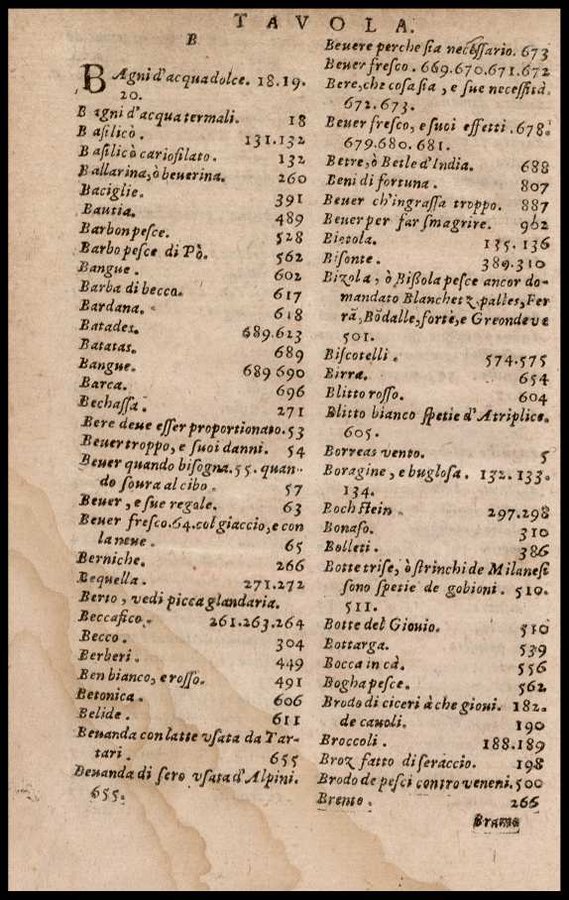 TAVOLA.
B
BAgni d'acqua dolce. 18.19.
20.
Bagni d'acqua termali. 18
Basilicò. 131.132
Basilicò cariofilato. 132
Ballarina, ò beuerina. 260
Baciglie. 391
Bautia. 489
Barbon pesce. 528
Barbo pesce di Pò. 562
Bangue. 602
Barba di becco. 617
Bardana. 618
Batades. 689.623
Batatas. 689
Bangue. 689 690
Barca. 696
Bechassa. 271
Bere deue esser proportionato. 53
Beuer troppo, e suoi danni. 54
Beuer quando bisogna. 55. quan-
do soura al cibo. 57
Beuer, e sue regole. 63
Beuer fresco. 64. col giaccio, e con
la neue. 65
Berniche. 266
Bequella. 271.272
Berto, vedi picca glandaria.
Beccafico. 261.263.264
Becco. 304
Berberi. 449
Ben bianco, e rosso. 491
Betonica. 606
Belide. 611
Beuanda con latte vsata da Tar-
tari. 655
Beuanda di sero vsata d'Alpini.
655.
Beuere perche sia necessario. 673
Beuer fresco. 669.670.671.672
Bere, che cosa sia, e sue necessità.
672.673.
Beuer fresco, e suoi effetti. 678.
679.680.681.
Betre, ò Betle d'India. 688
Beni di fortuna. 807
Beuer ch'ingrassa troppo. 887
Beuer per far smagrire. 962
Bietola. 135.136
Bisonte. 389.310
Bizola, ò Bißola pesce ancor do-
mandato Blanchetz, palles, Fer
rã, Bödalle, forte, e Greondeve
501.
Biscotelli. 574.575
Birra. 654
Blitto rosso. 604
Blitto bianco spetie d'Atriplice.
605.
Borreas vento. 5
Boragine, e buglosa. 132.133.
134.
Boch stein. 297.298
Bonaso. 310
Bolleti. 386
Botte trise, ò strinchi de Milanesi
sono spetie de gobioni. 510.
511.
Botte del Giouio. 510
Bottarga. 539
Bocca in cà. 556
Bogha pesce. 562
Brodo di ciceri à che gioui. 182.
de cauoli. 190
Broccoli. 188.189
Broz fatto di seraccio. 198
Brodo de pesci contro veneni. 500
Brento. 266